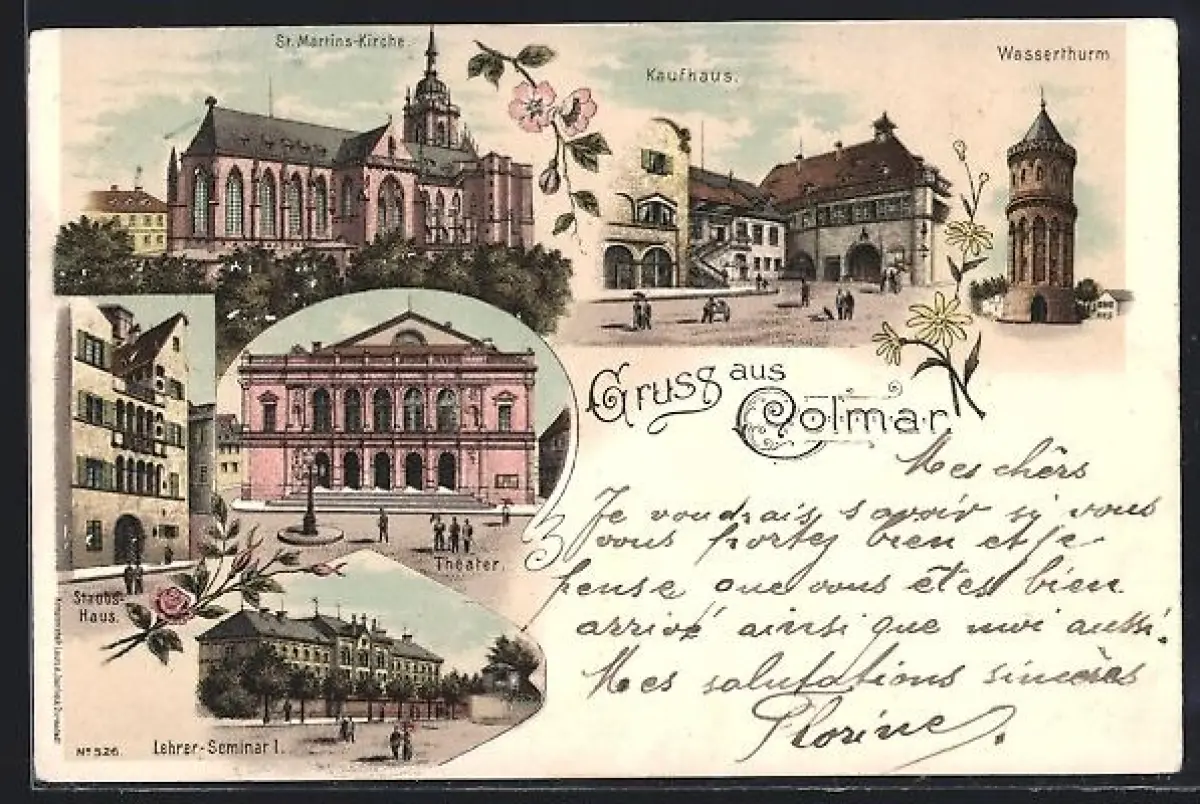 St. Martins-Kirche.
Kaufhaus.
Wasserthurm
Gruss aus
Colmar
Mes chêrs
Je voudrais savoir si vous
vous portez bien et je
pense que vous êtes bien
arrivé ainsi que moi aussi.
Mes salutations sincères
Florine.
Theater.
Haus.
Lehrer-Seminar I.
No 526.